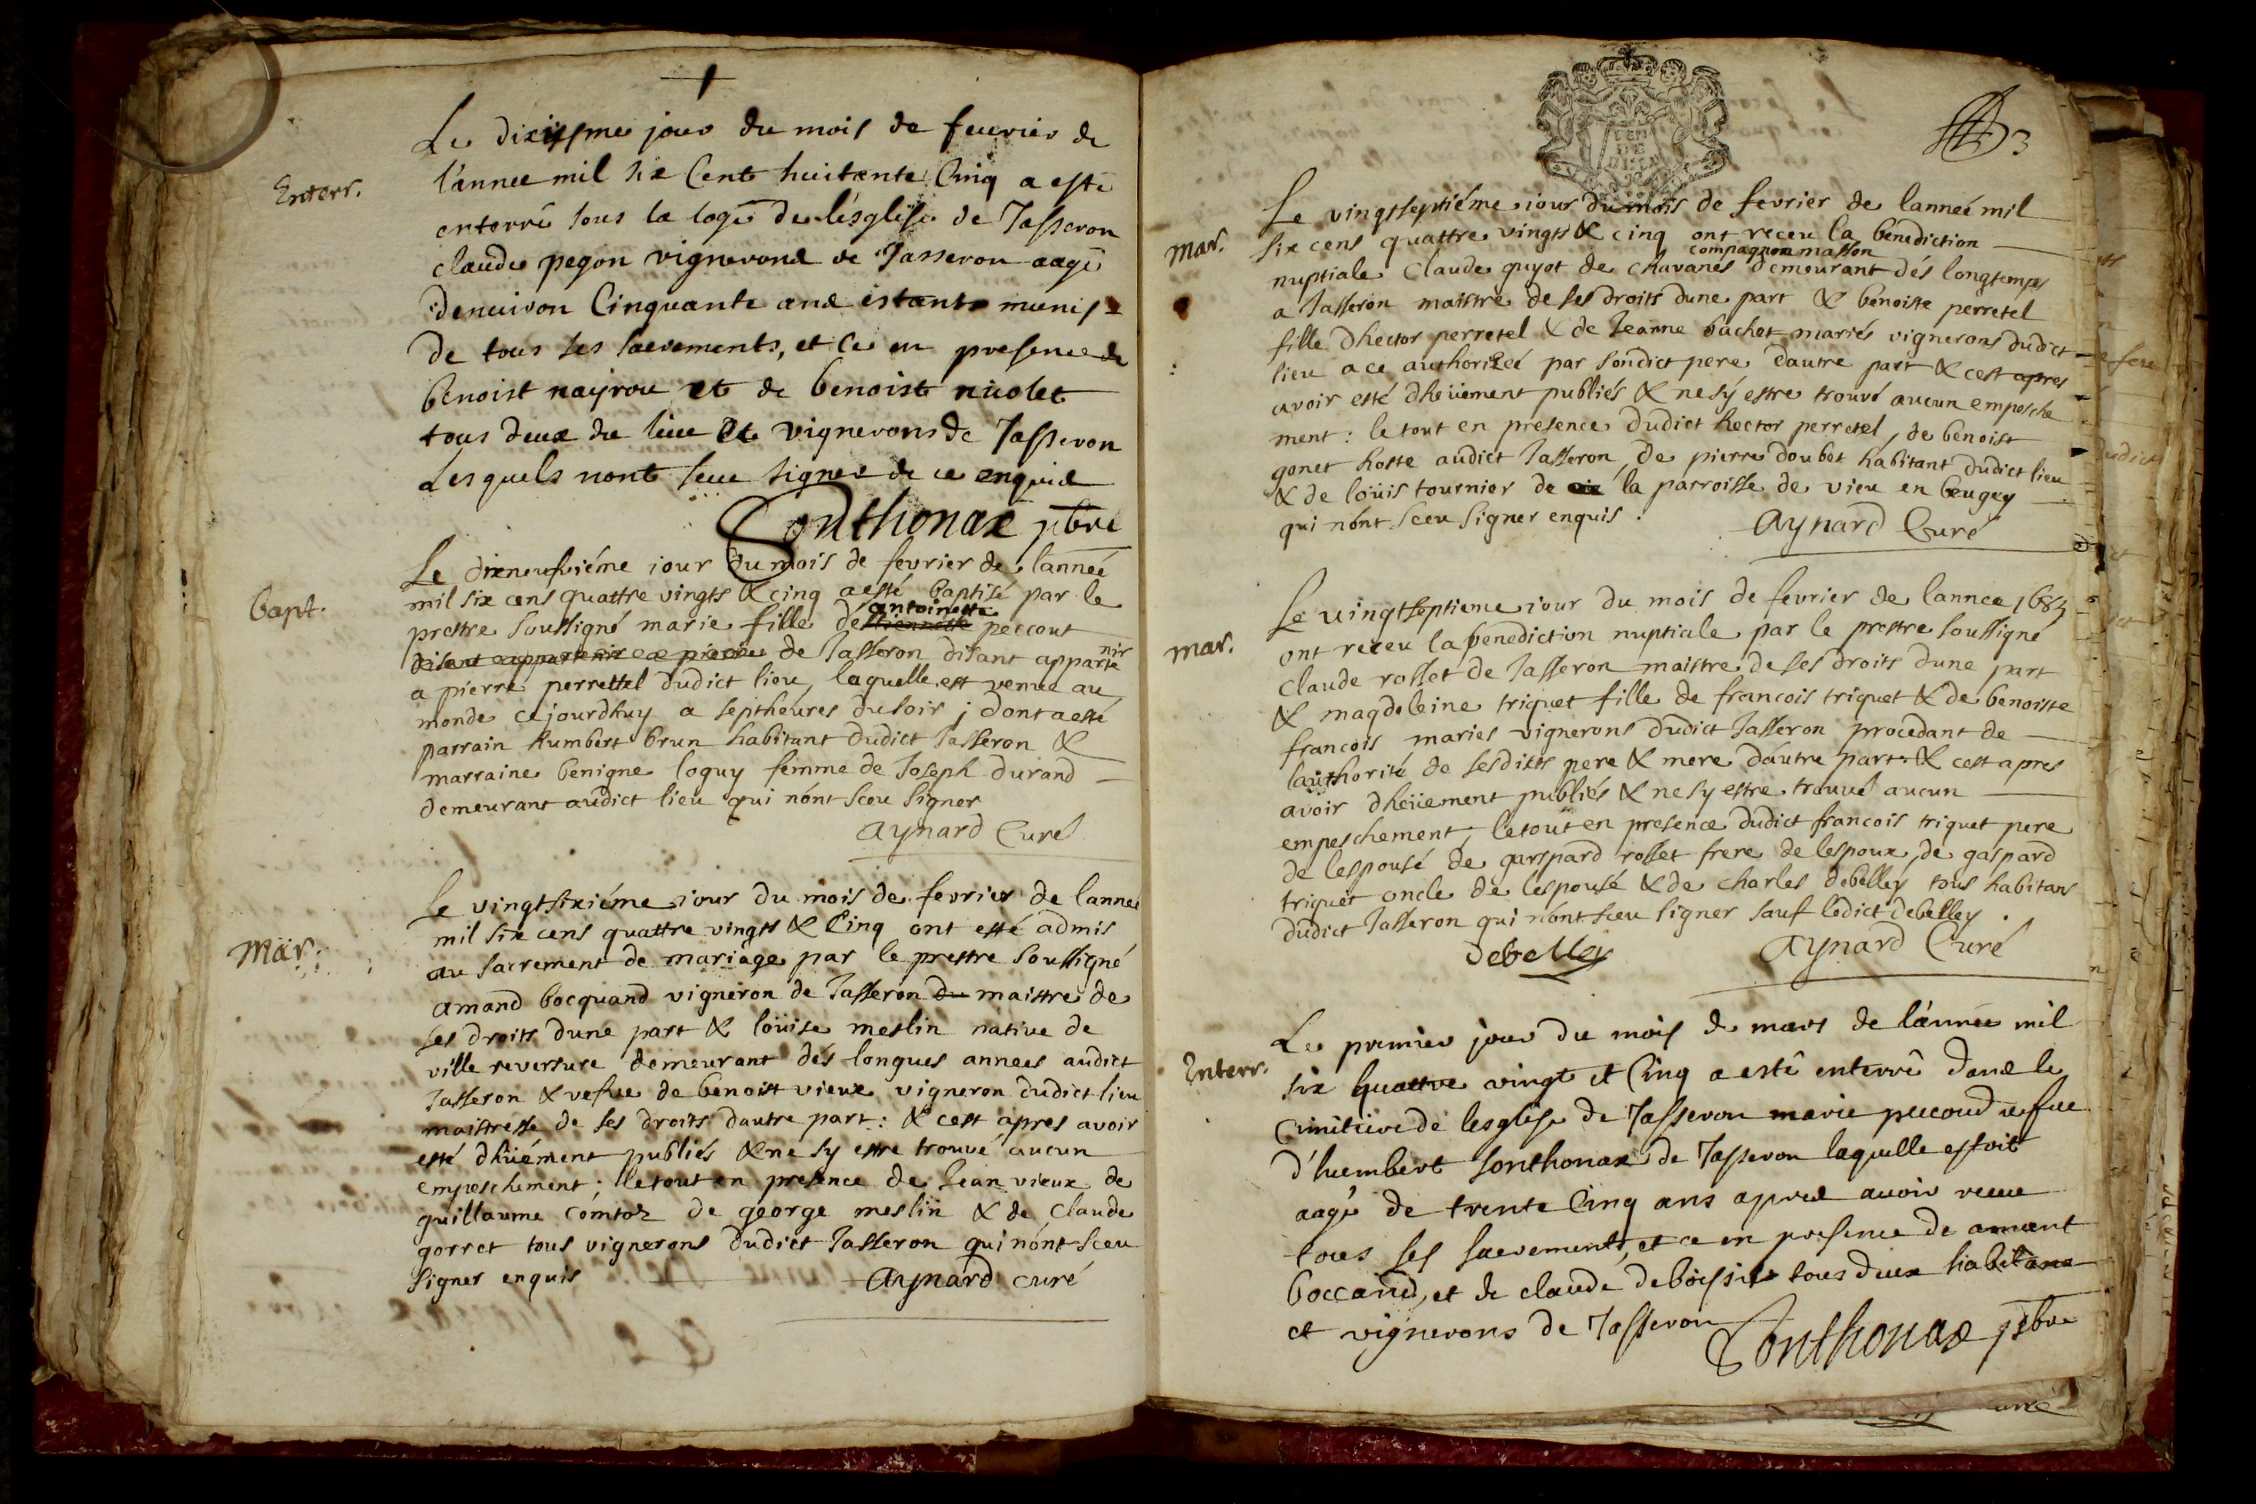 Le dixiesme jour du mois de feuvrier de
Enterr.
l'annee mil six Cent huictante Cinq a esté
enterré sous la loge de l'esglise de Jasseron
claude pegon vignerond de Jasseron aagé
denuiron Cinquante ans estant munis
de tous ses sacrements, et ce en presence de
benoist nayrou et de benoist niuolet
tous deux du lieu et vignerons de Jasseron
Lesquels nont sceu signer de ce enquis
Sonthonax pbre
Bapt.
Le dixneufviéme iour du mois de fevrier de lanneé
mil six cens quattre vingts & cinq a esté baptisé par le
prestre soussigné marie fille de antoinette peccout
disant appartenir a pierre de Jasseron disant apparte nir
a pierre perrettel dudict lieu, laquelle est venue au
monde cejourdhuy a sept heures du soir ; dont a esté
parrain humbert brun habitant dudict Jasseron &
marraine benigne loquy femme de Joseph durand
demeurant audict lieu qui nónt sceu signer
Aynard Curé
Mar.
Le vingtsixiéme iour du mois de fevrier de lanneé
mil six cens quattre vingts & Cinq ont esté admis
au sacrement de mariage par le prestre soussigné
amand bocquand vigneron de Jasseron du maistre de
ses droits dune part & loüise meslin native de
ville reversure demeurant dés longues annees audict
Jasseron & vefve de benoist vieux vigneron dudict lieu
maistresse de ses droits dautre part : & cest apres avoir
esté dhüément publiés & ne sy estre trouvé aucun
empeschement ; le tout en presence de Jean vieux de
guillaume comtoz de george meslin & de claude
gorret tous vignerons dudict Jasseron qui nónt sceu
signer enquis
Aynard curé
3
Mar.
Le vingtseptiéme iour du mois de fevrier de lanneé mil
six cens quattre vingts & cinq ont receu la bénediction
compagnon masson
nuptiale Claude guyot de chavanes demeurant dés longtemps
a Jasseron maistre de ses droits dune part & benoiste perretel
fille dhector perretel & de Jeanne bachet mariés vignerons dudict
lieu a ce authoriseé par sondict pere dautre part & cest apres
avoir esté dheüement publiés & ne sy estre trouvé aucun empesche
ment : le tout en presence dudict hector perretel, de benoist
gonet hoste audict Jasseron, de pierre doubet habitant dudict lieu
& de loüis tournier de la parroisse de vieu en beugey
qui nónt sceu signer enquis .
Aynard Curé
mar.
Le vingtseptieme iour du mois de fevrier de lannee 1685
ont receu la benediction nuptiale par le prestre soussigné
Claude rosset de Jasseron maistre de ses droits dune part
& magdeleine triquet fille de francois triquet & de benoiste
francois mariés vignerons dudict Jasseron procedant de
lauthorité de sesdicts pere & mere dautre part & cest apres
avoir dheüement publiés & ne sy estre trouvé aucun
empeschement, le tout en presence dudict francois triquet pere
de lespousé de garspard rosset frere de lespoux, de gaspard
triquet oncle de lespousé & de charles debelley tous habitans
dudict Jasseron qui nónt sceu signer sauf ledict debelley .
debelley
Aynard Curé
Enterr.
Le premier jour du mois de mars de l'année mil
six quattre vingt et Cinq a esté enterré dans le
cimitiere de lesglise de Jasseron marie peccoud vefue
d'humbert sonthonax de Jasseron laquelle estoit
aagé de trente Cinq ans apres auoir receu
tous ses sacrements, et ce en presence de amant
boccand, et de claude deboissie tous deux habitans
et vignerons de Jasseron
Sonthonax pbre